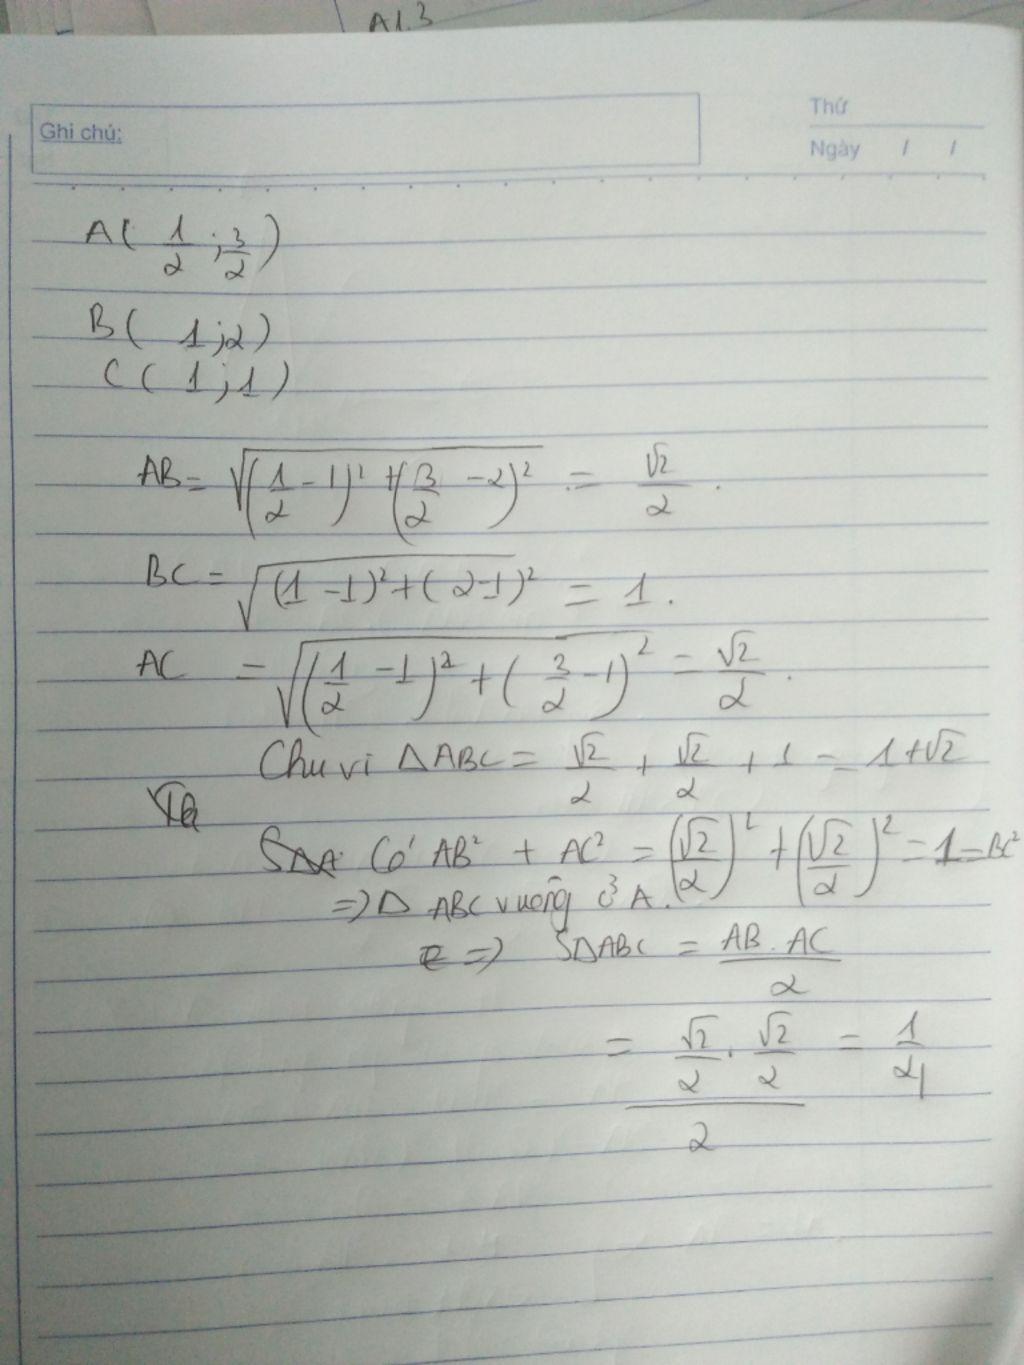 A1.3
Thứ
Ghi chú:
Ngày / /
A( 1/2 ; 3/2 )
B( 1;2)
C( 1;1)
AB = √((1/2 - 1)² + (3/2 - 2)²) = √2/2 .
BC = √((1 - 1)² + (2-1)²) = 1 .
AC = √((1/2 - 1)² + (3/2 - 1)²) = √2/2 .
Chu vi ΔABC = √2/2 + √2/2 + 1 = 1+√2
Ta
Có AB² + AC² = (√2/2)² + (√2/2)² = 1 = BC²
=> Δ ABC vuông ở A.
=> SΔABC = AB . AC / 2
= (√2/2 . √2/2) / 2 = 1/4